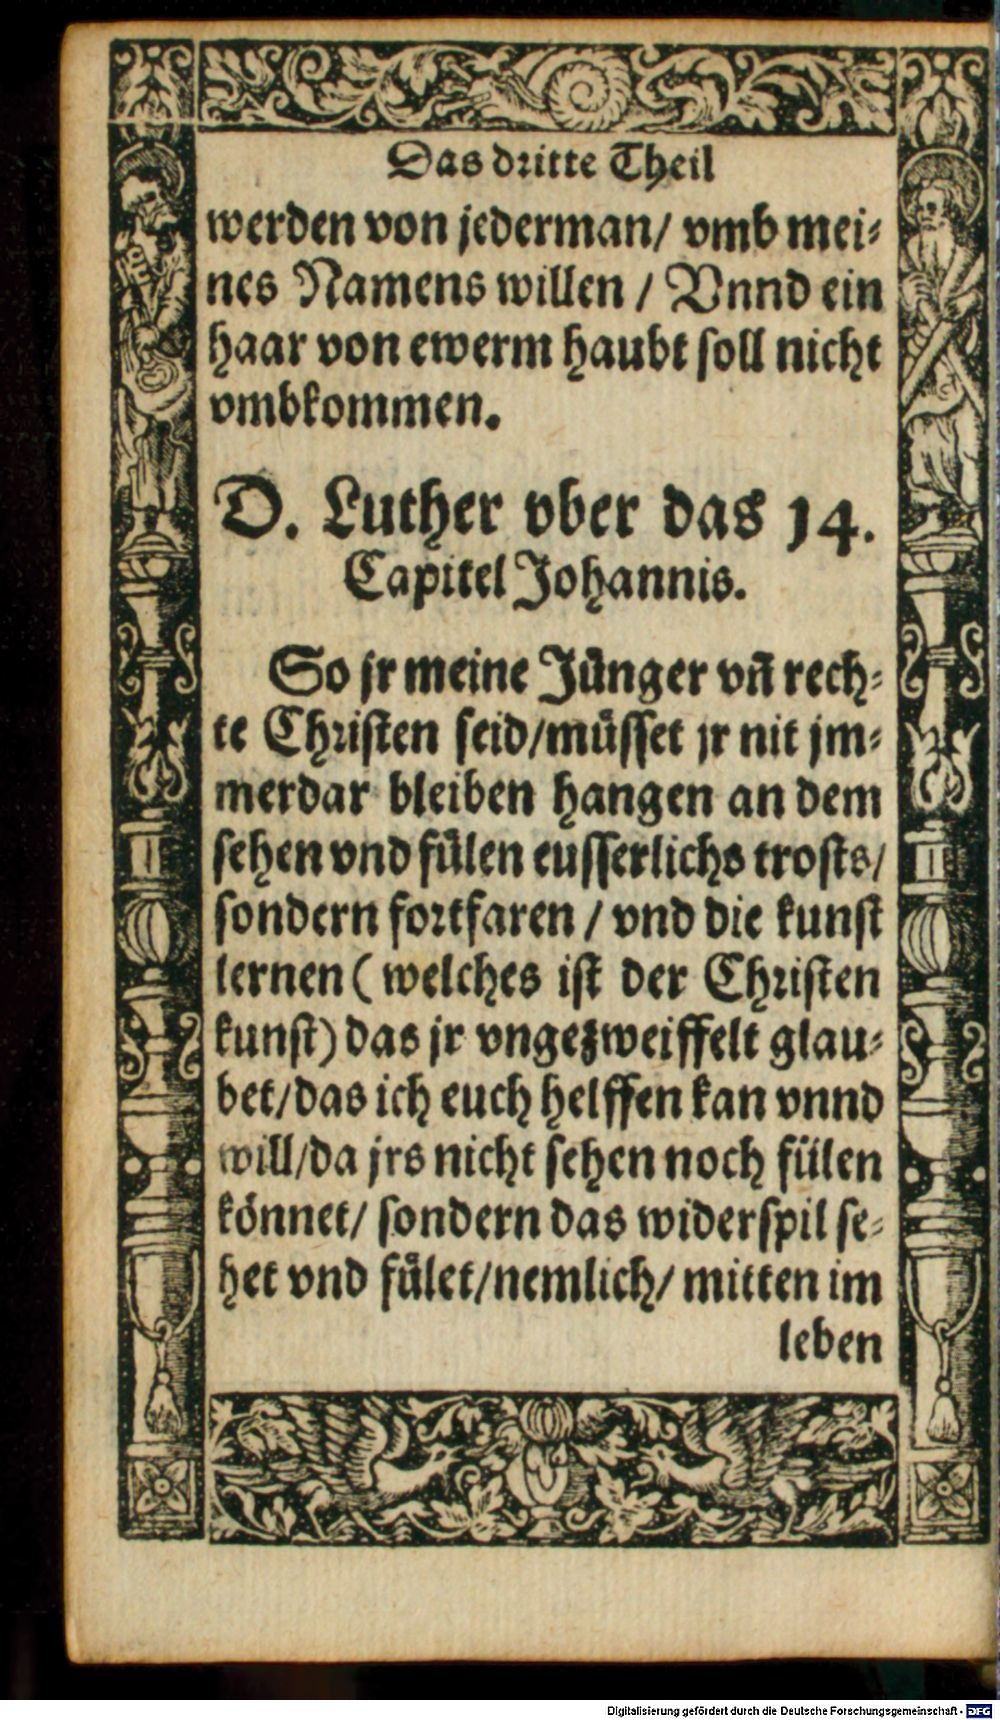 Das dritte Theil
werden von jederman/ vmb mei⸗
nes Namens willen / Vnnd ein
haar von ewerm haubt soll nicht
vmbkommen.
D. Luther vber das 14.
Capitel Johannis.
So jr meine Jünger vn̄ rech⸗
te Christen seid/müsset jr nit jm⸗
merdar bleiben hangen an dem
sehen vnd fülen eusserlichs trosts/
sondern fortfaren / vnd die kunst
lernen ( welches ist der Christen
kunst) das jr vngezweiffelt glau⸗
bet/das ich euch helffen kan vnnd
will/da jrs nicht sehen noch fülen
könnet/ sondern das widerspil se⸗
het vnd fület/nemlich/ mitten im
leben
Digitalisierung gefördert durch die Deutsche Forschungsgemeinschaft - DFG